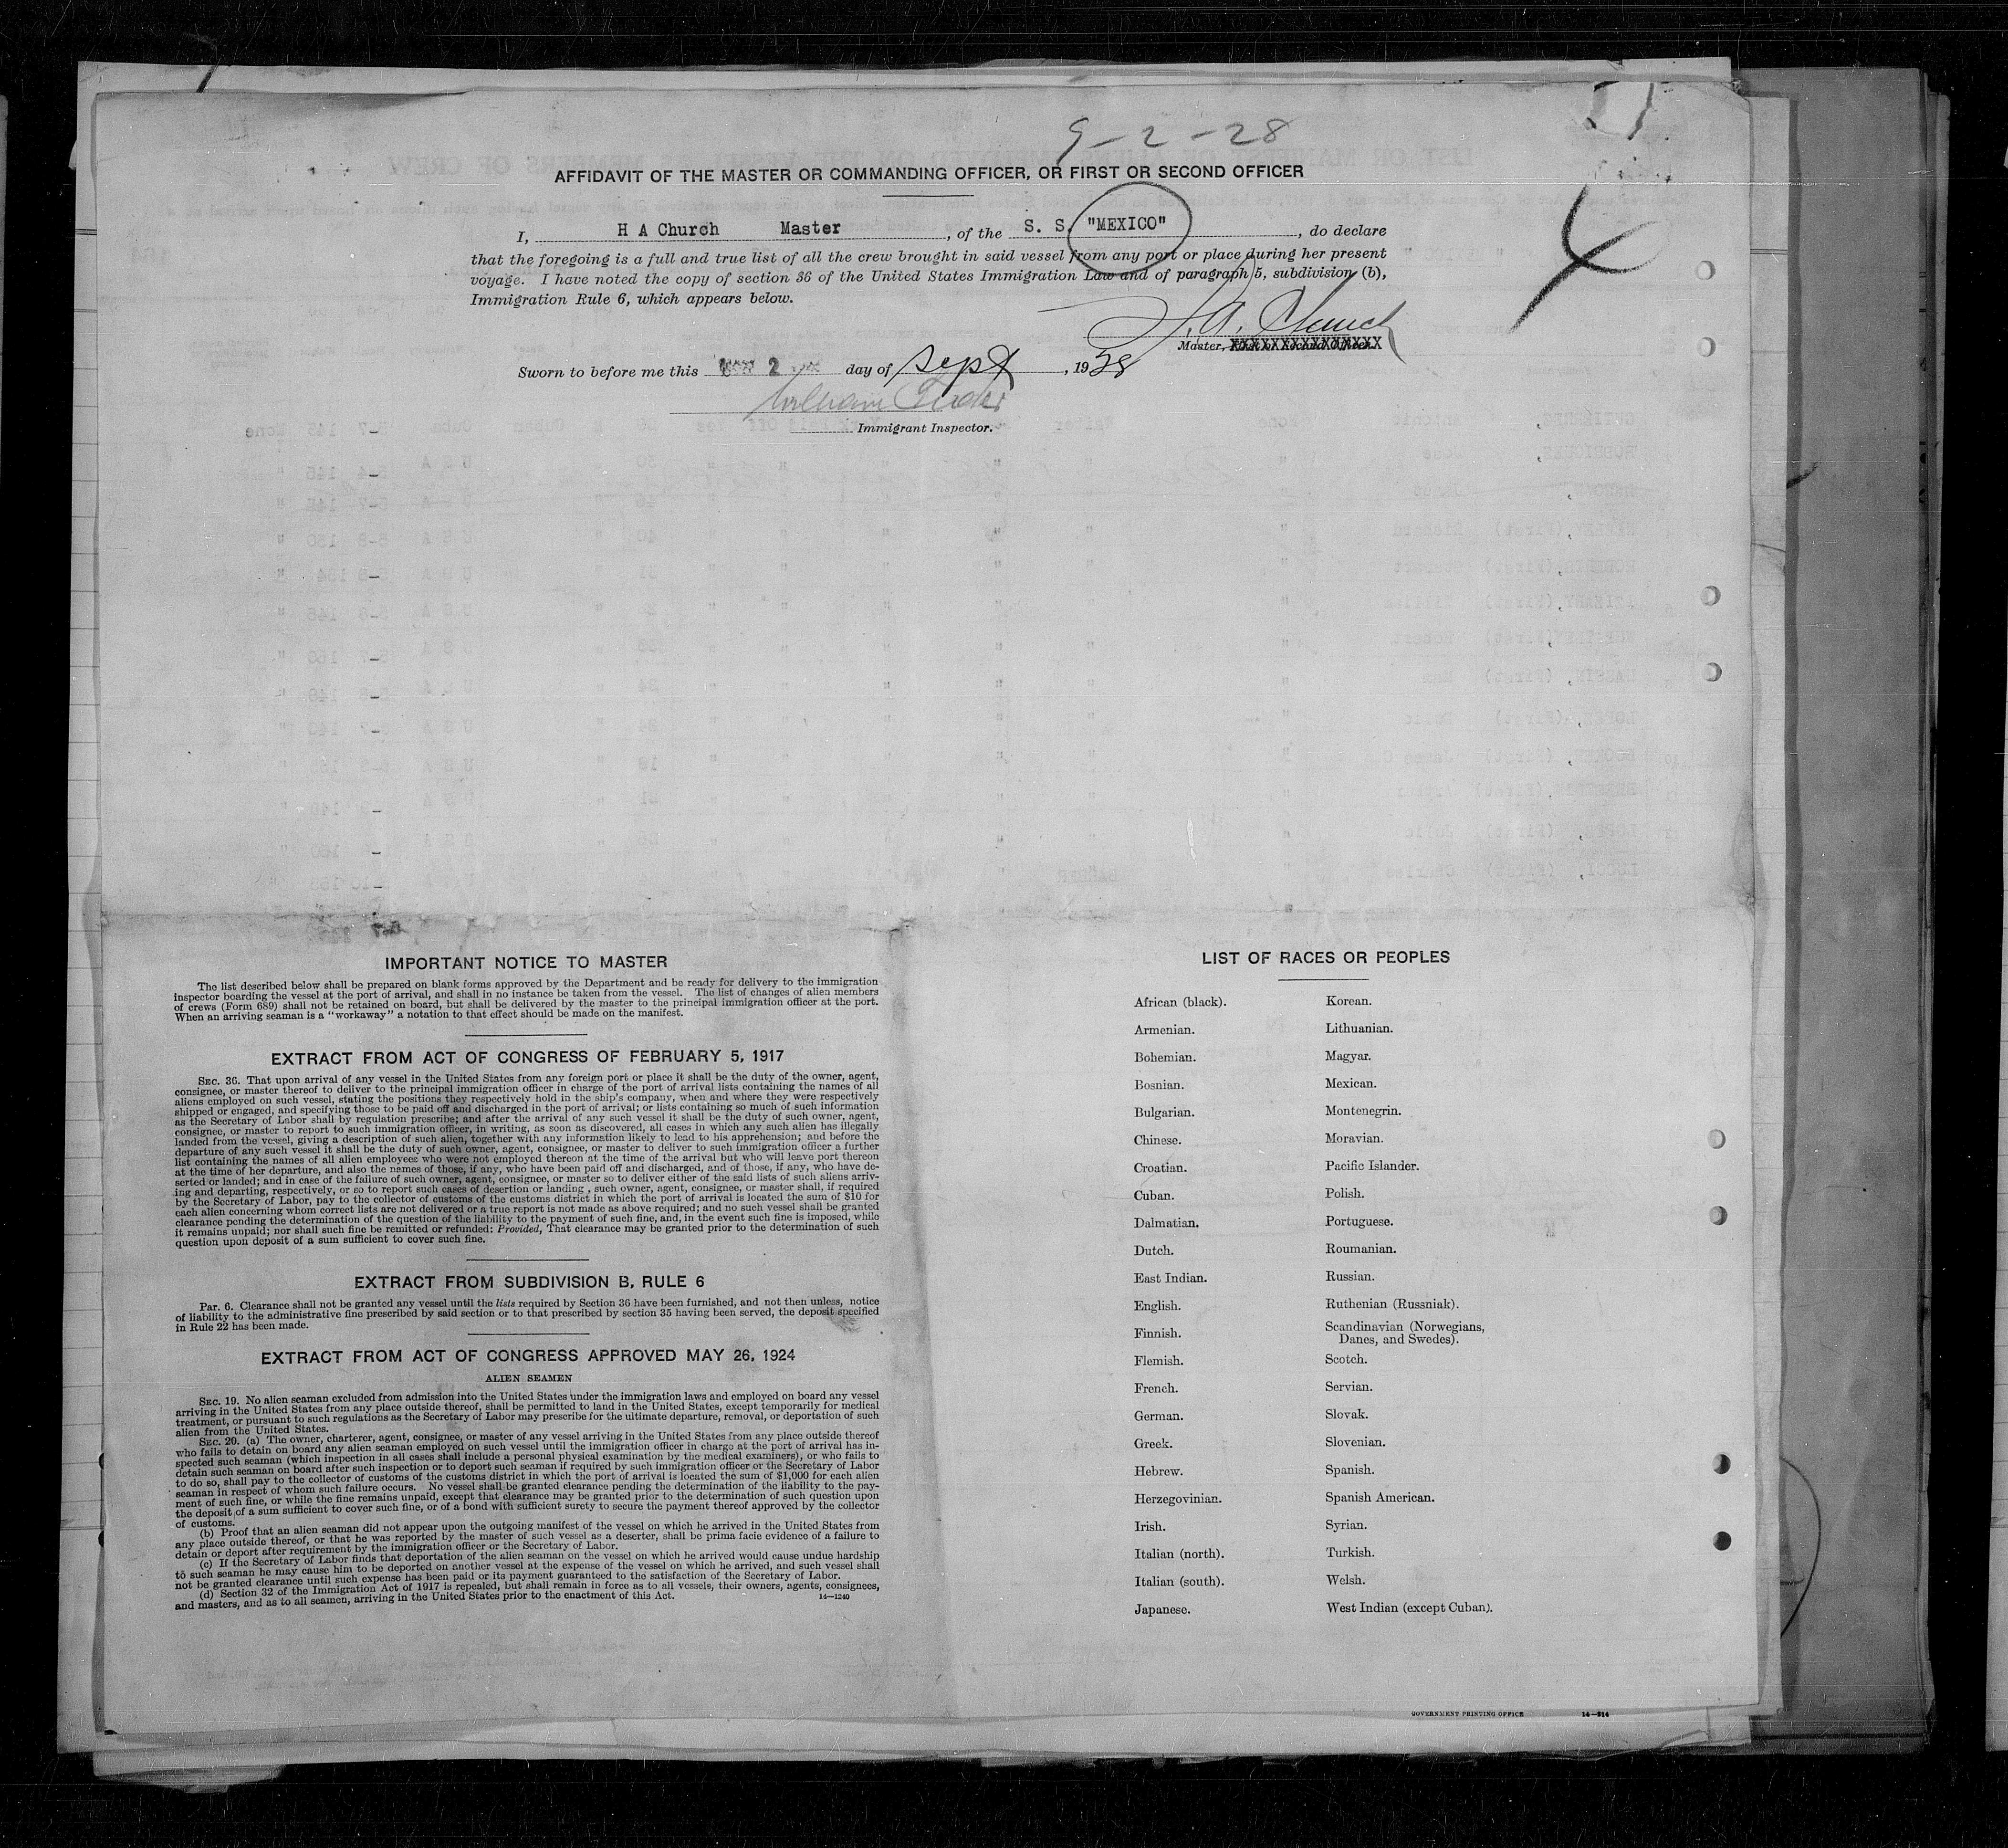 9-2-28
AFFIDAVIT OF THE MASTER OR COMMANDING OFFICER, OR FIRST OR SECOND OFFICER
I, H A Church Master, of the S. S. "MEXICO", do declare
that the foregoing is a full and true list of all the crew brought in said vessel from any port or place during her present
voyage. I have noted the copy of section 36 of the United States Immigration Law and of paragraph 5, subdivision (b),
Immigration Rule 6, which appears below.
H. A. Church
Master,
Sworn to before me this 2 day of Sept, 1928
William
Immigrant Inspector.
IMPORTANT NOTICE TO MASTER
The list described below shall be prepared on blank forms approved by the Department and be ready for delivery to the immigration
inspector boarding the vessel at the port of arrival, and shall in no instance be taken from the vessel. The list of changes of alien members
of crews (Form 689) shall not be retained on board, but shall be delivered by the master to the principal immigration officer at the port.
When an arriving seaman is a "workaway" a notation to that effect should be made on the manifest.
EXTRACT FROM ACT OF CONGRESS OF FEBRUARY 5, 1917
SEC. 36. That upon arrival of any vessel in the United States from any foreign port or place it shall be the duty of the owner, agent,
consignee, or master thereof to deliver to the principal immigration officer in charge of the port of arrival lists containing the names of all
aliens employed on such vessel, stating the positions they respectively hold in the ship's company, when and where they were respectively
shipped or engaged, and specifying those to be paid off and discharged in the port of arrival; or lists containing so much of such information
as the Secretary of Labor shall by regulation prescribe; and after the arrival of any such vessel it shall be the duty of such owner, agent,
consignee, or master to report to such immigration officer, in writing, as soon as discovered, all cases in which any such alien has illegally
landed from the vessel, giving a description of such alien, together with any information likely to lead to his apprehension; and before the
departure of any such vessel it shall be the duty of such owner, agent, consignee, or master to deliver to such immigration officer a further
list containing the names of all alien employees who were not employed thereon at the time of the arrival but who will leave port thereon
at the time of her departure, and also the names of those, if any, who have been paid off and discharged, and of those, if any, who have de-
serted or landed; and in case of the failure of such owner, agent, consignee, or master so to deliver either of the said lists of such aliens arriv-
ing and departing, respectively, or so to report such cases of desertion or landing , such owner, agent, consignee, or master shall, if required
by the Secretary of Labor, pay to the collector of customs of the customs district in which the port of arrival is located the sum of $10 for
each alien concerning whom correct lists are not delivered or a true report is not made as above required; and no such vessel shall be granted
clearance pending the determination of the question of the liability to the payment of such fine, and, in the event such fine is imposed, while
it remains unpaid; nor shall such fine be remitted or refunded: Provided, That clearance may be granted prior to the determination of such
question upon deposit of a sum sufficient to cover such fine.
EXTRACT FROM SUBDIVISION B, RULE 6
Par. 6. Clearance shall not be granted any vessel until the lists required by Section 36 have been furnished, and not then unless, notice
of liability to the administrative fine prescribed by said section or to that prescribed by section 35 having been served, the deposit specified
in Rule 22 has been made.
EXTRACT FROM ACT OF CONGRESS APPROVED MAY 26, 1924
ALIEN SEAMEN
SEC. 19. No alien seaman excluded from admission into the United States under the immigration laws and employed on board any vessel
arriving in the United States from any place outside thereof, shall be permitted to land in the United States, except temporarily for medical
treatment, or pursuant to such regulations as the Secretary of Labor may prescribe for the ultimate departure, removal, or deportation of such
alien from the United States.
SEC. 20. (a) The owner, charterer, agent, consignee, or master of any vessel arriving in the United States from any place outside thereof
who fails to detain on board any alien seaman employed on such vessel until the immigration officer in charge at the port of arrival has in-
spected such seaman (which inspection in all cases shall include a personal physical examination by the medical examiners), or who fails to
detain such seaman on board after such inspection or to deport such seaman if required by such immigration officer or the Secretary of Labor
to do so, shall pay to the collector of customs of the customs district in which the port of arrival is located the sum of $1,000 for each alien
seaman in respect of whom such failure occurs. No vessel shall be granted clearance pending the determination of the liability to the pay-
ment of such fine, or while the fine remains unpaid, except that clearance may be granted prior to the determination of such question upon
the deposit of a sum sufficient to cover such fine, or of a bond with sufficient surety to secure the payment thereof approved by the collector
of customs.
(b) Proof that an alien seaman did not appear upon the outgoing manifest of the vessel on which he arrived in the United States from
any place outside thereof, or that he was reported by the master of such vessel as a deserter, shall be prima facie evidence of a failure to
detain or deport after requirement by the immigration officer or the Secretary of Labor.
(c) If the Secretary of Labor finds that deportation of the alien seaman on the vessel on which he arrived would cause undue hardship
to such seaman he may cause him to be deported on another vessel at the expense of the vessel on which he arrived, and such vessel shall
not be granted clearance until such expense has been paid or its payment guaranteed to the satisfaction of the Secretary of Labor.
(d) Section 32 of the Immigration Act of 1917 is repealed, but shall remain in force as to all vessels, their owners, agents, consignees,
and masters, and as to all seamen, arriving in the United States prior to the enactment of this Act. 14—1240
LIST OF RACES OR PEOPLES
African (black). Korean.
Armenian. Lithuanian.
Bohemian. Magyar.
Bosnian. Mexican.
Bulgarian. Montenegrin.
Chinese. Moravian.
Croatian. Pacific Islander.
Cuban. Polish.
Dalmatian. Portuguese.
Dutch. Roumanian.
East Indian. Russian.
English. Ruthenian (Russniak).
Finnish. Scandinavian (Norwegians,
Danes, and Swedes).
Flemish. Scotch.
French. Servian.
German. Slovak.
Greek. Slovenian.
Hebrew. Spanish.
Herzegovinian. Spanish American.
Irish. Syrian.
Italian (north). Turkish.
Italian (south). Welsh.
Japanese. West Indian (except Cuban).
GOVERNMENT PRINTING OFFICE 14—814